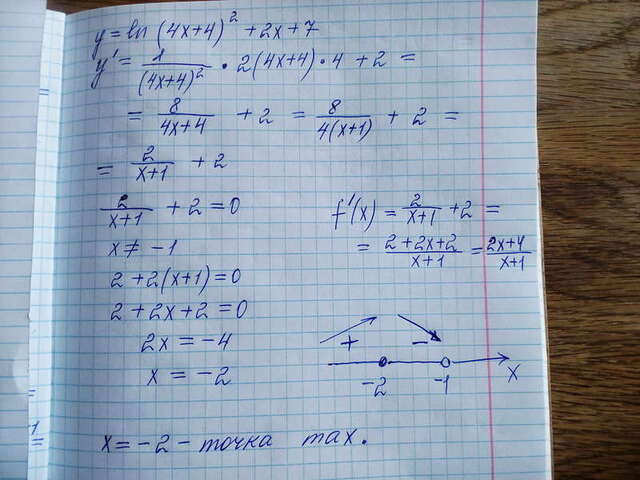 y = ln (4x+4)² + 2x + 7
y' = 1/(4x+4)² • 2(4x+4) • 4 + 2 =
= 8/(4x+4) + 2 = 8/(4(x+1)) + 2 =
= 2/(x+1) + 2
2/(x+1) + 2 = 0
x ≠ -1
2 + 2(x+1) = 0
2 + 2x + 2 = 0
2x = -4
x = -2
f'(x) = 2/(x+1) + 2 =
= (2+2x+2)/(x+1) = (2x+4)/(x+1)
+ -
-2 -1 x
x = -2 - точка max.